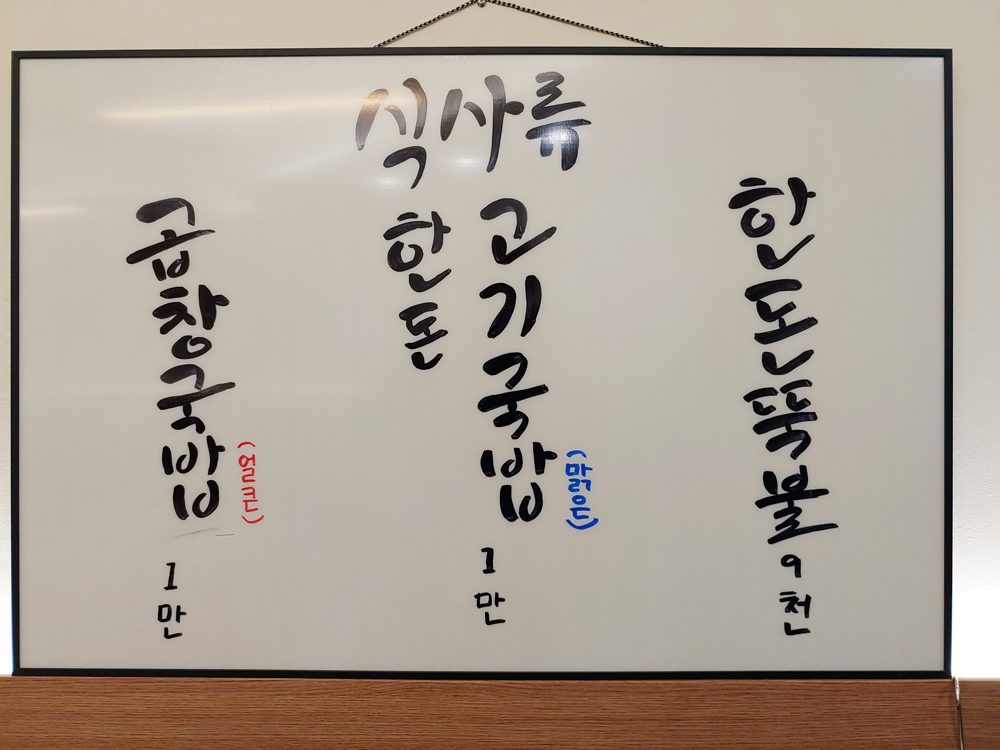 식사류
곱창국밥
(얼큰)
1만
한돈
고기국밥
(맑은)
1만
한돈뚝불
9천